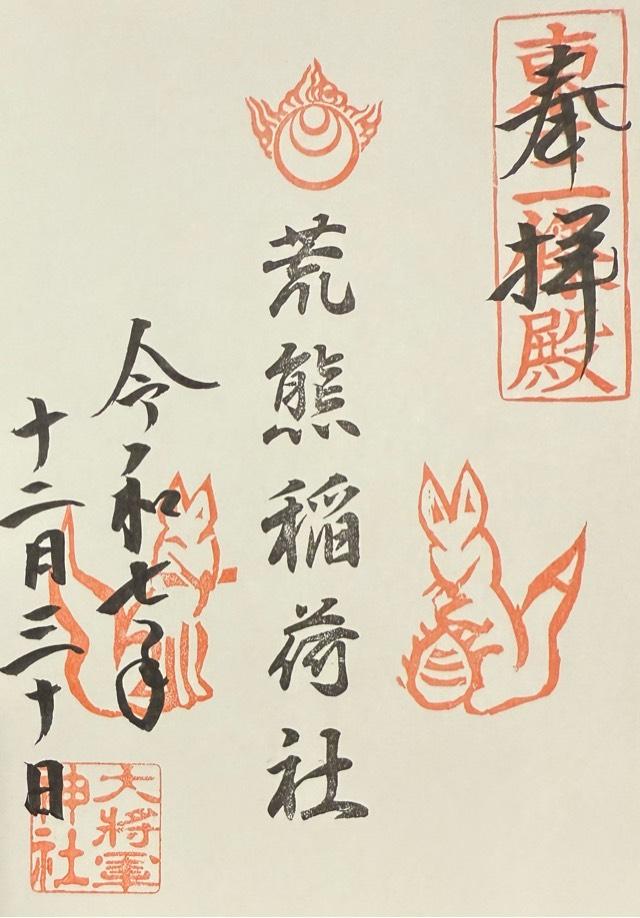 奉拝
荒熊稲荷社
令和七年
十二月三十日
大将軍
神社